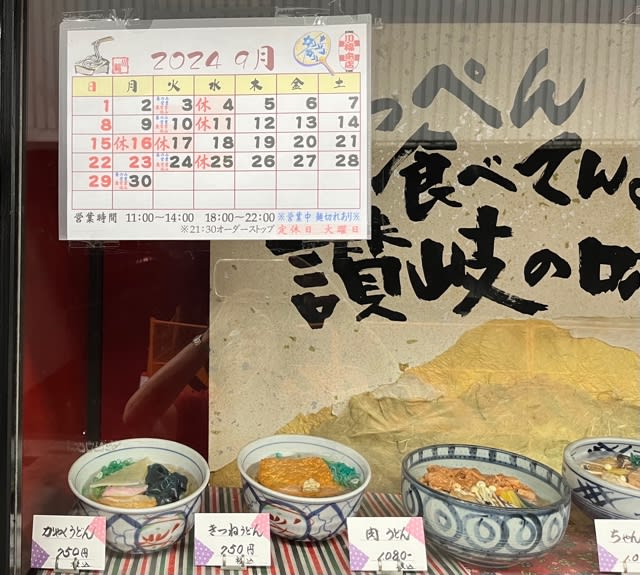 2024 9月
川福本店
日 月 火 水 木 金 土
1 2 3 休4 5 6 7
8 9 10 休11 12 13 14
15 休16 休17 18 19 20 21
22 23 24 休25 26 27 28
29 30
営業時間 11:00〜14:00 18:00〜22:00 ※営業中 麺切れあり※
※21:30オーダーストップ 定休日 火曜日
っぺん
食べてん
讃岐の味
かやくうどん
750円
税込
きつねうどん
750円
税込
肉うどん
1080-
税込
ちゃん